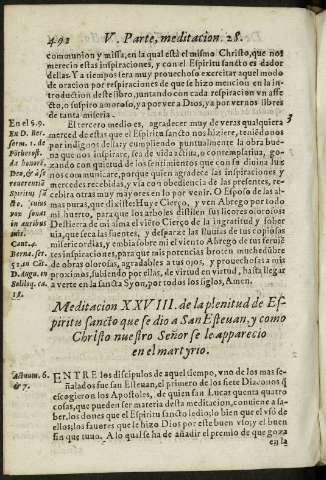 492 V. Parte, meditacion. 28.
communion y missa, en la qual està el mismo Christo, que nos
merecio estas inspiraciones, y con el Espiritu sancto es dador
dellas. Y a tiempos sera muy prouechoso exercitar aquel modo
de oracion por respiraciones de que se hizo mencion en la in-
troduction deste libro, juntando con cada respiracion vn affe-
cto, o suspiro amoroso, ya por ver a Dios, ya por vernos libres
de tanta miseria.
El tercero medio es, agradecer muy de veras qualquiera
merced destas que el Espiritu sancto nos hiziere, teniendonos
por indignos della, y cumpliendo puntualmente la obra bue-
na que nos inspirare, sea de vida actiua, o contemplatiua, go-
zando con quietud de los sentimientos que con su diuina luz
nos comunicare, porque quien agradece las inspiraciones y
mercedes recebidas, y vía con obediencia de las presentes, re-
cebira otras muy mayores en lo por venir. O Esposo de las al-
mas puras, que dixiste: Huye Cierço, y ven Abrego por todo
mi huerto, para que los arboles distilen sus licores olorosos
Destierra de mi alma el vieto Cierço de la ingratitud y sober
uia, que seca las fuentes, y desparze las lluuias de tus copiosas
misericordias, y embia sobre mi el viento Abrego de tus feruie
tes inspiraciones, para que mis potencias broten muchedubre
de obras olorosas, agradables a tus ojos, y prouechosas a mis
proximos, subiendo por ellas, de virtud en virtud, hasta llegar
a verte en la sancta Syon, por todos los siglos, Amen.
En el §.9.
En D. Ber-
serm. 1. de
Deo, &
reuerentia
Spiritus sā
cto, cuius
vox sonat
in auribus
meis.
Cant. 4.
Berna. ser.
D. Aug. in
Soliloq. ca.
3
Meditacion XXVIII. de la plenitud de Es-
piritu sancto que se dio a San Esteuan, y como
Christo nuestro Señor se le apparecio
en el martyrio.
Actuum. 6.
& 7.
ENTRE los discipulos de aquel tiempo, vno de los mas se-
ñalados fue san Esteuan, el primero de los siete Diaconos q̃
escogieron los Apostoles, de quien san Lucas quenta quatro
cosas, que pueden ser materia desta meditacion, conuiene a sa-
ber, los dones que el Espiritu sancto le dio; lo bien que vsó de
ellos; los fauores que le hizo Dios por este buen vso; y el buen
fin que tuuo. A lo qual se ha de añadir el premio de que goza
en la